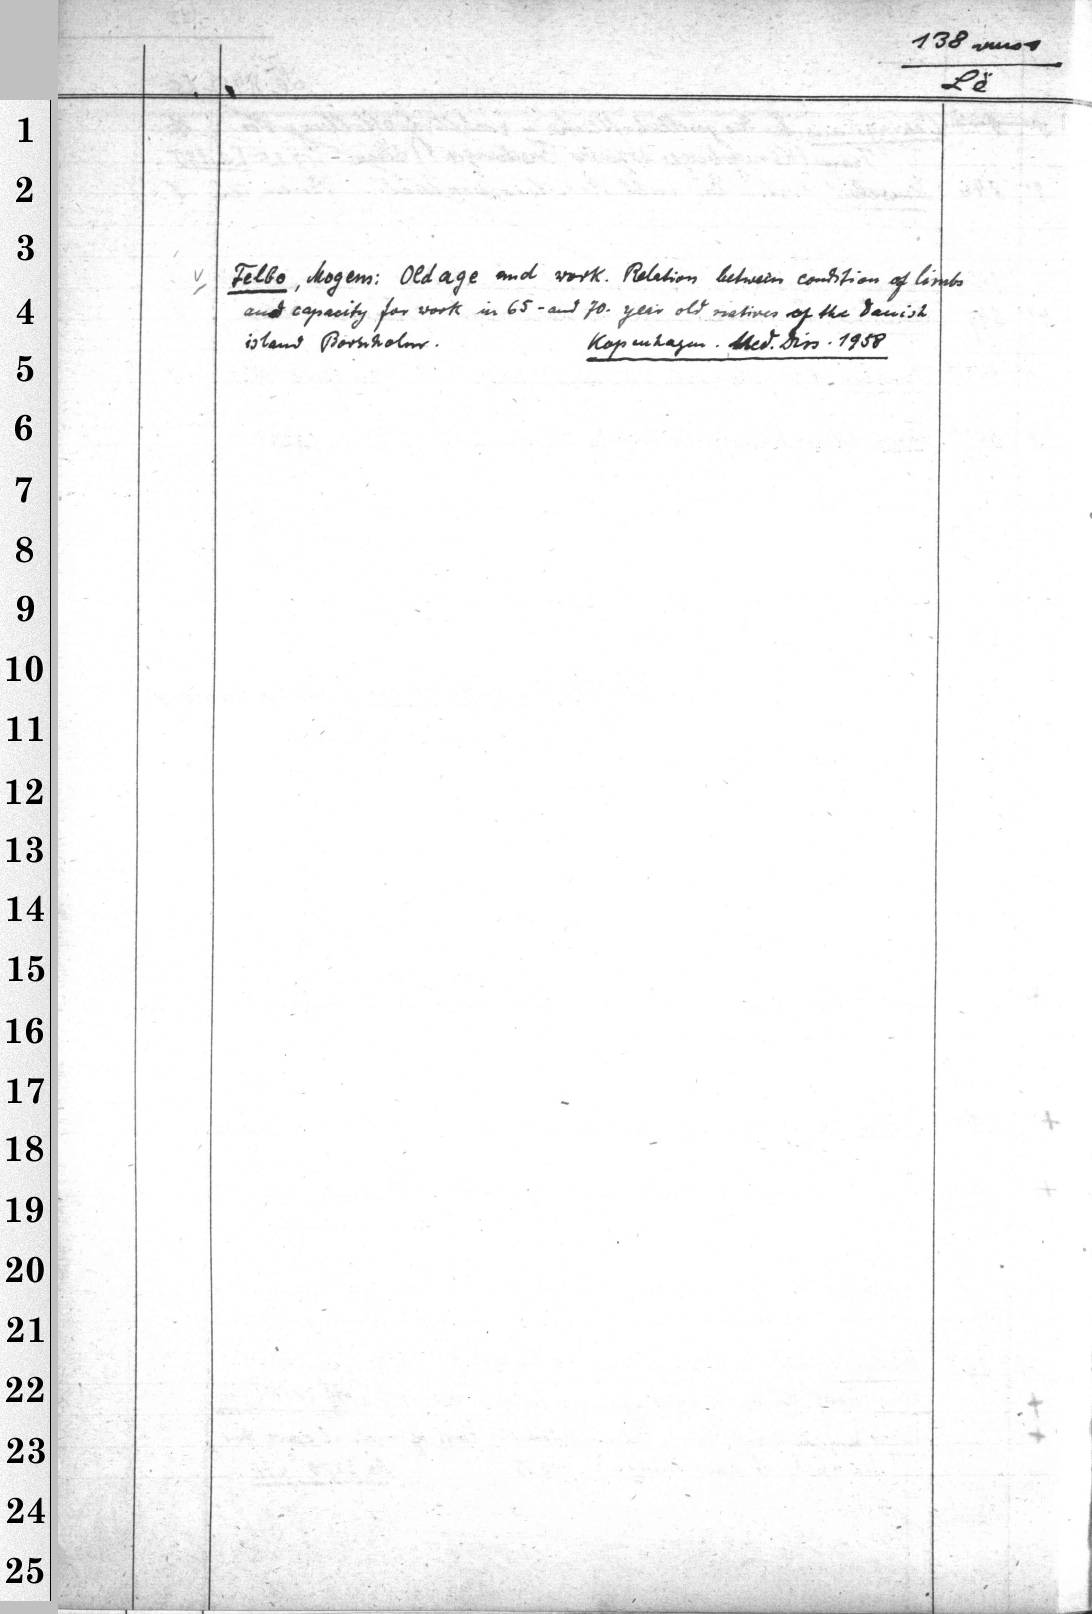 138
Lë
1
2
3
Felbo, Mogens: Old age and work. Relation between condition of limbs
4
and capacity for work in 65-and 70-year old natives of the Danish
island Bornholm. Kopenhagen. Med. Diss. 1958
5
6
7
8
9
10
11
12
13
14
15
16
17
18
19
20
21
22
23
24
25